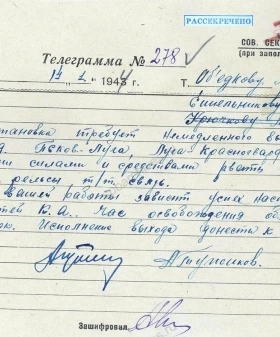 РАССЕКРЕЧЕНО
СОВ. СЕК
(при запол
Телеграмма № 278
14 1 1944 г. Т. Объедкову
Синельникову
Крючкову
тановка требует немедленного вы
Псков-Луга, Луга Красногвард
ми силами и средствами рвать
рельсы т/т связь.
Вашей работы зависит успех нас
тей К.А. Час освобождения об
Исполнение выхода донести к
Атрощенко
Зашифровал